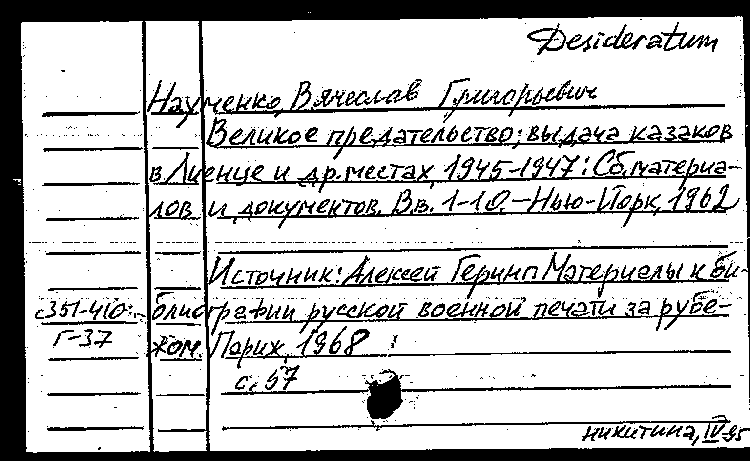 Desideratum
Науменко, Вячеслав Григорьевич
Великое предательство; выдача казаков
в Лиенце и др. местах, 1945-1947: Сб. материа-
лов и документов. Вв. 1-10. - Нью-Йорк, 1962
Источник: Алексей Геринг Материалы к би-
с351-410:- блиографии русской военной печати за рубе-
Г-37 жом. Париж, 1968
с. 57
никитина, IV-95